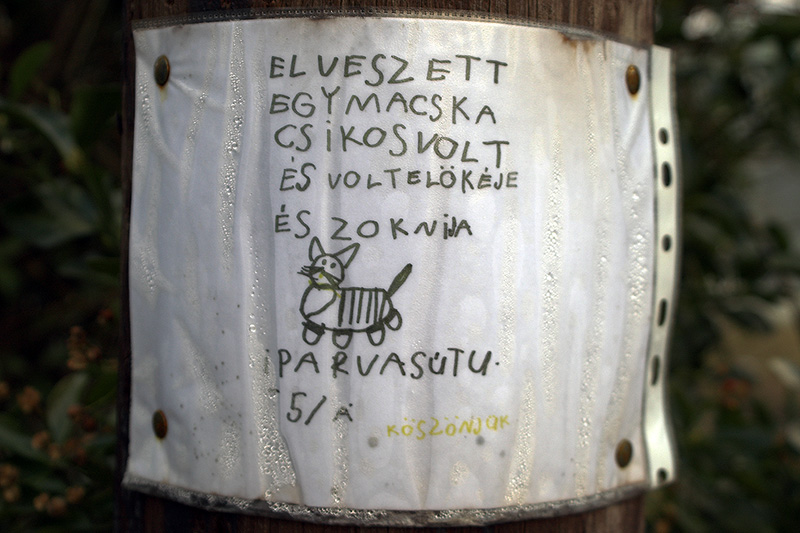 ELVESZETT
EGYMACSKA
CSIKOSVOLT
ÉS VOLTELÖKÉJE
ÉS ZOKNIJA
iPARVASÚTU.
15/A
KÖSZÖNJÜK